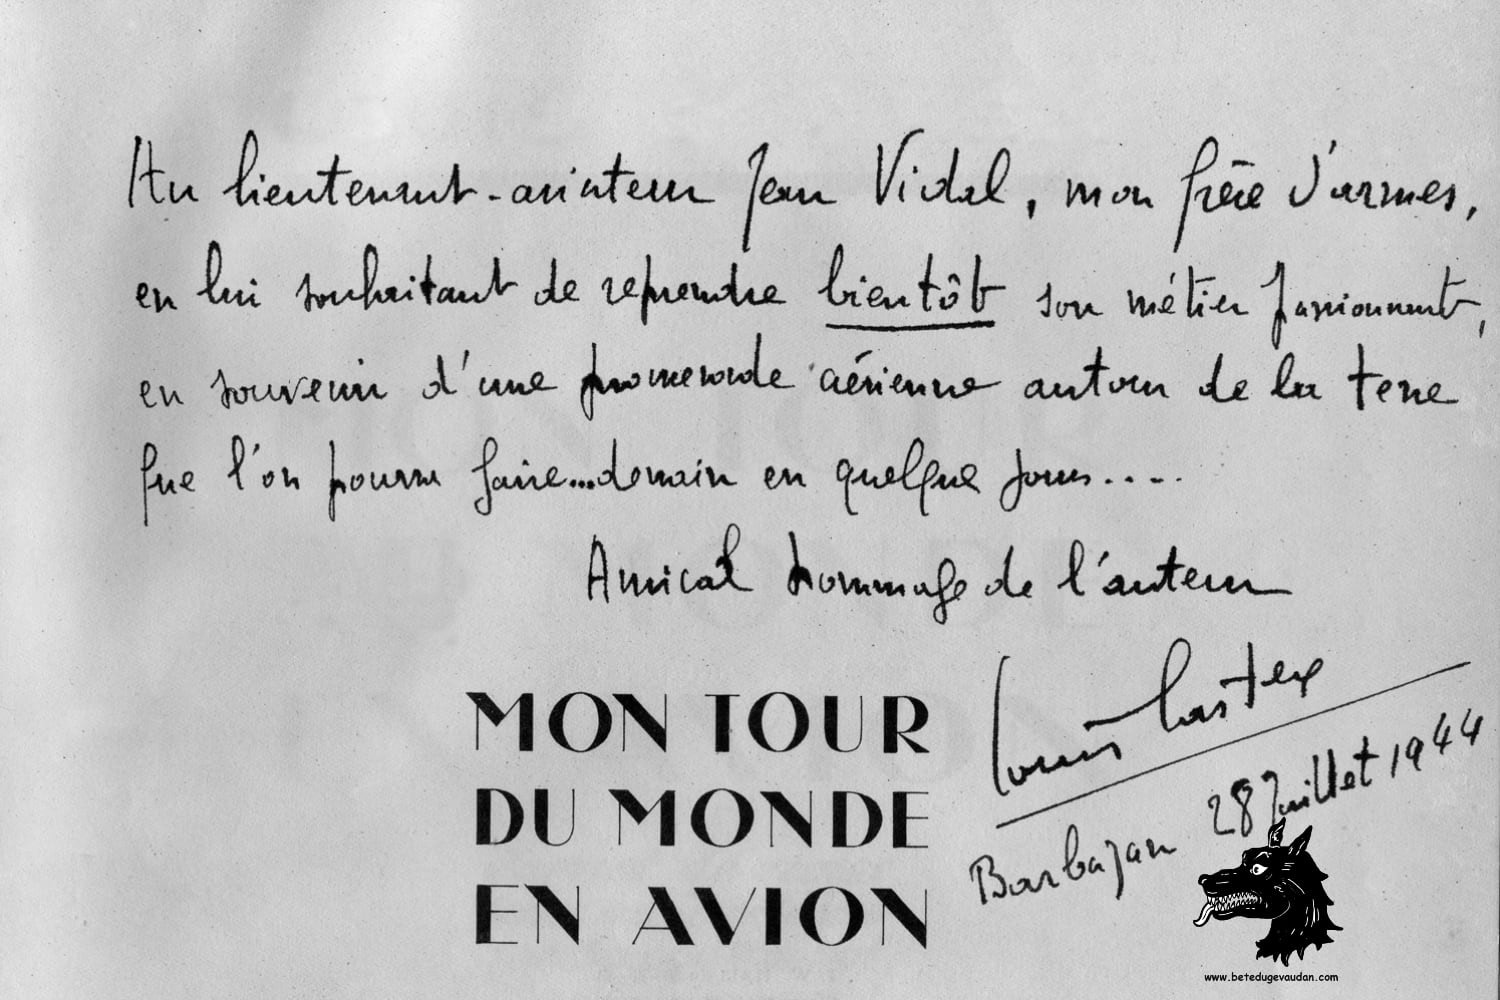 Au lieutenant-aviateur Jean Vidal, mon frère d'armes,
en lui souhaitant de reprendre bientôt son métier passionnant,
en souvenir d'une promenade aérienne autour de la terre
que l'on pourra faire...demain en quelque jours....
Amical hommage de l'auteur
Louis Castex
Barbazan 28 Juillet 1944
MON TOUR
DU MONDE
EN AVION
www.betedugevaudan.com